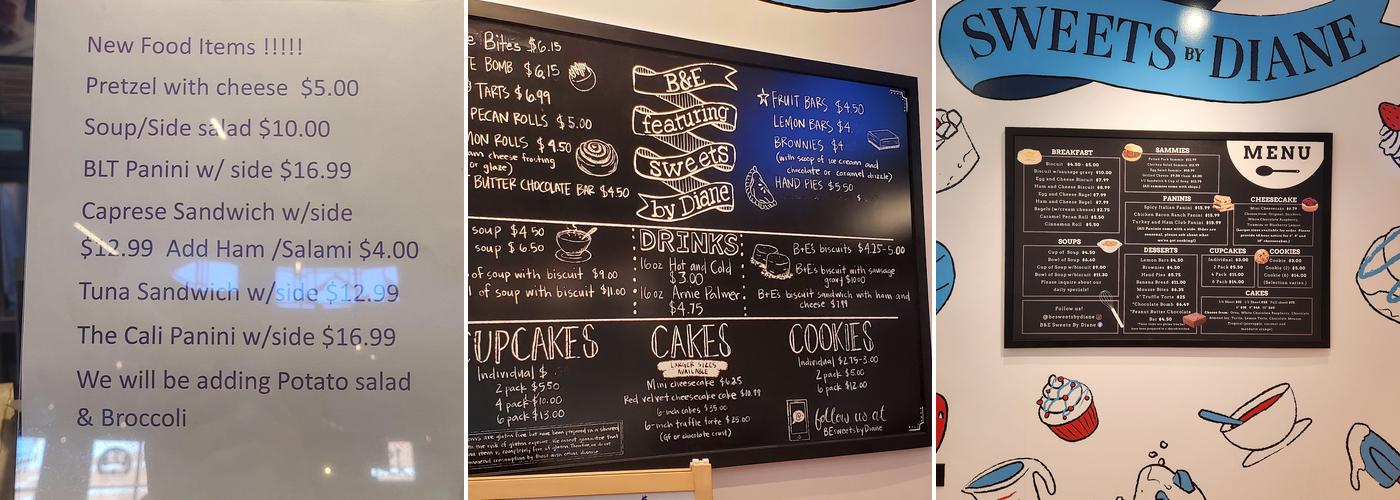 New Food Items !!!!!
Pretzel with cheese $5.00
Soup/Side salad $10.00
BLT Panini w/ side $16.99
Caprese Sandwich w/side
$12.99 Add Ham /Salami $4.00
Tuna Sandwich w/side $12.99
The Cali Panini w/side $16.99
We will be adding Potato salad
& Broccoli
Bites $6.15
BOMB $6.15
TARTS $6.99
PECAN ROLLS $5.00
ROLLS $4.50
cheese frosting
or glaze)
BUTTER CHOCOLATE BAR $4.50
B&E
featuring
sweets
by Diane
FRUIT BARS $4.50
LEMON BARS $4
BROWNIES $4
(with scoop of ice cream and
chocolate or caramel drizzle)
HAND PIES $5.50
soup $4.50
soup $6.50
of soup with biscuit $9.00
of soup with biscuit $11.00
DRINKS
16oz Hot and Cold
$3.00
16oz Arnie Palmer
$4.75
B+E's biscuits $4.25-5.00
B+E's biscuit with sausage
gravy $10.00
B+E's biscuit sandwich with ham and
cheese $7.99
UPCAKES
Individual $
2 pack $5.50
4 pack $10.00
6 pack $13.00
CAKES
LARGER SIZES
AVAILABLE
Mini cheesecake $6.25
Red velvet cheesecake cake $10.99
6-inch cakes $35.00
6-inch truffle torte $25.00
(GF or chocolate crust)
COOKIES
Individual $2.75-3.00
2 pack $5.00
6 pack $12.00
follow us at
BEsweetsbyDiane
SWEETS BY DIANE
MENU
BREAKFAST
Biscuit $4.50 - $5.00
Biscuit w/sausage gravy $10.00
Egg and Cheese Biscuit $7.99
Ham and Cheese Biscuit $8.99
Egg and Cheese Bagel $7.99
Ham and Cheese Bagel $7.99
Bagels (w/cream cheese) $2.75
Caramel Pecan Roll $5.50
Cinnamon Roll $5.50
SOUPS
Cup of Soup $4.50
Bowl of Soup $6.60
Cup of Soup w/biscuit $9.00
Bowl of Soup w/biscuit $11.30
Please inquire about our
daily specials!
Follow us!
@besweetsbydiane
B&E Sweets By Diane
SAMMIES
(All sammies come with chips.)
PANINIS
Spicy Italian Panini $15.99
Chicken Bacon Ranch Panini $15.99
Turkey and Ham Club Panini $15.99
DESSERTS
Lemon Bars $4.50
Brownies $4.50
Hand Pies $5.75
Banana Bread $11.00
Mousse Bites $6.35
6" Truffle Torte $25
*Chocolate Bomb $6.49
*Peanut Butter Chocolate
Bar $4.50
CHEESECAKE
CUPCAKES
Individual $3.00
2 Pack $5.50
4 Pack $11.00
6 Pack $14.00
COOKIES
Cookie $3.00
Cookie (2) $5.00
Cookie (6) $14.00
(Selection varies.)
CAKES